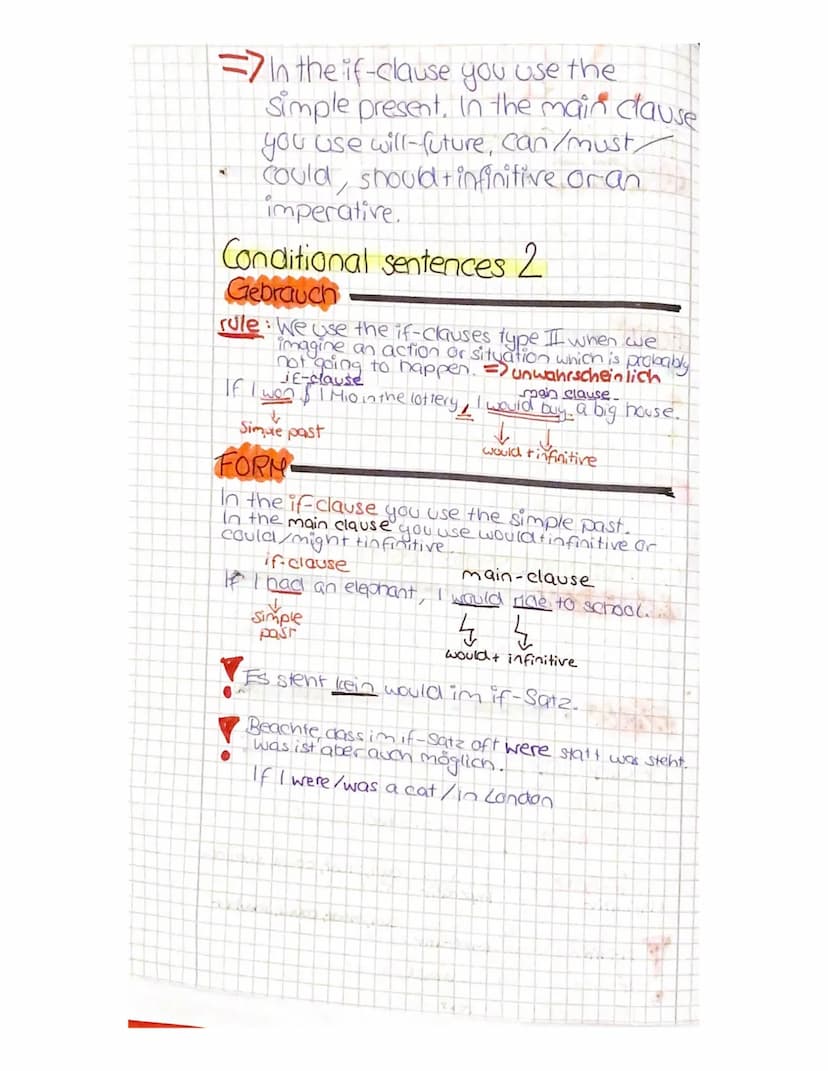 => In the if-clause you use the
simple present. In the main clause
you use will-future, can/must/
could, should+infinitive or an
imperative.
Conditional sentences 2
Gebrauch
rule: We use the if-clauses type II when we
imagine an action or situation which is probably
not going to happen. => unwahrscheinlich
if-clause main clause
If I won $ 1 Mio in the lottery, I would buy a big house.
simple past would + infinitive
FORM
In the if-clause you use the simple past.
In the main clause you use would+infinitive or
could/might+infinitive
if-clause main-clause
If I had an elephant, I would ride to school.
simple
past
would+ infinitive
! Es steht kein would im if-Satz.
! Beachte, dass im if-Satz oft were statt was steht.
was ist aber auch möglich.
If I were/was a cat/in London